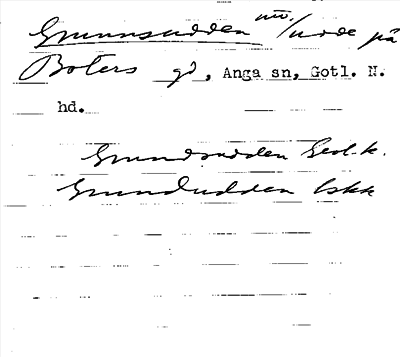 Grunnsudden nv. / udde på
Boters gd, Anga sn, Gotl. N.
hd.
Grundsudden Geol.k.
Grundudden Eskk